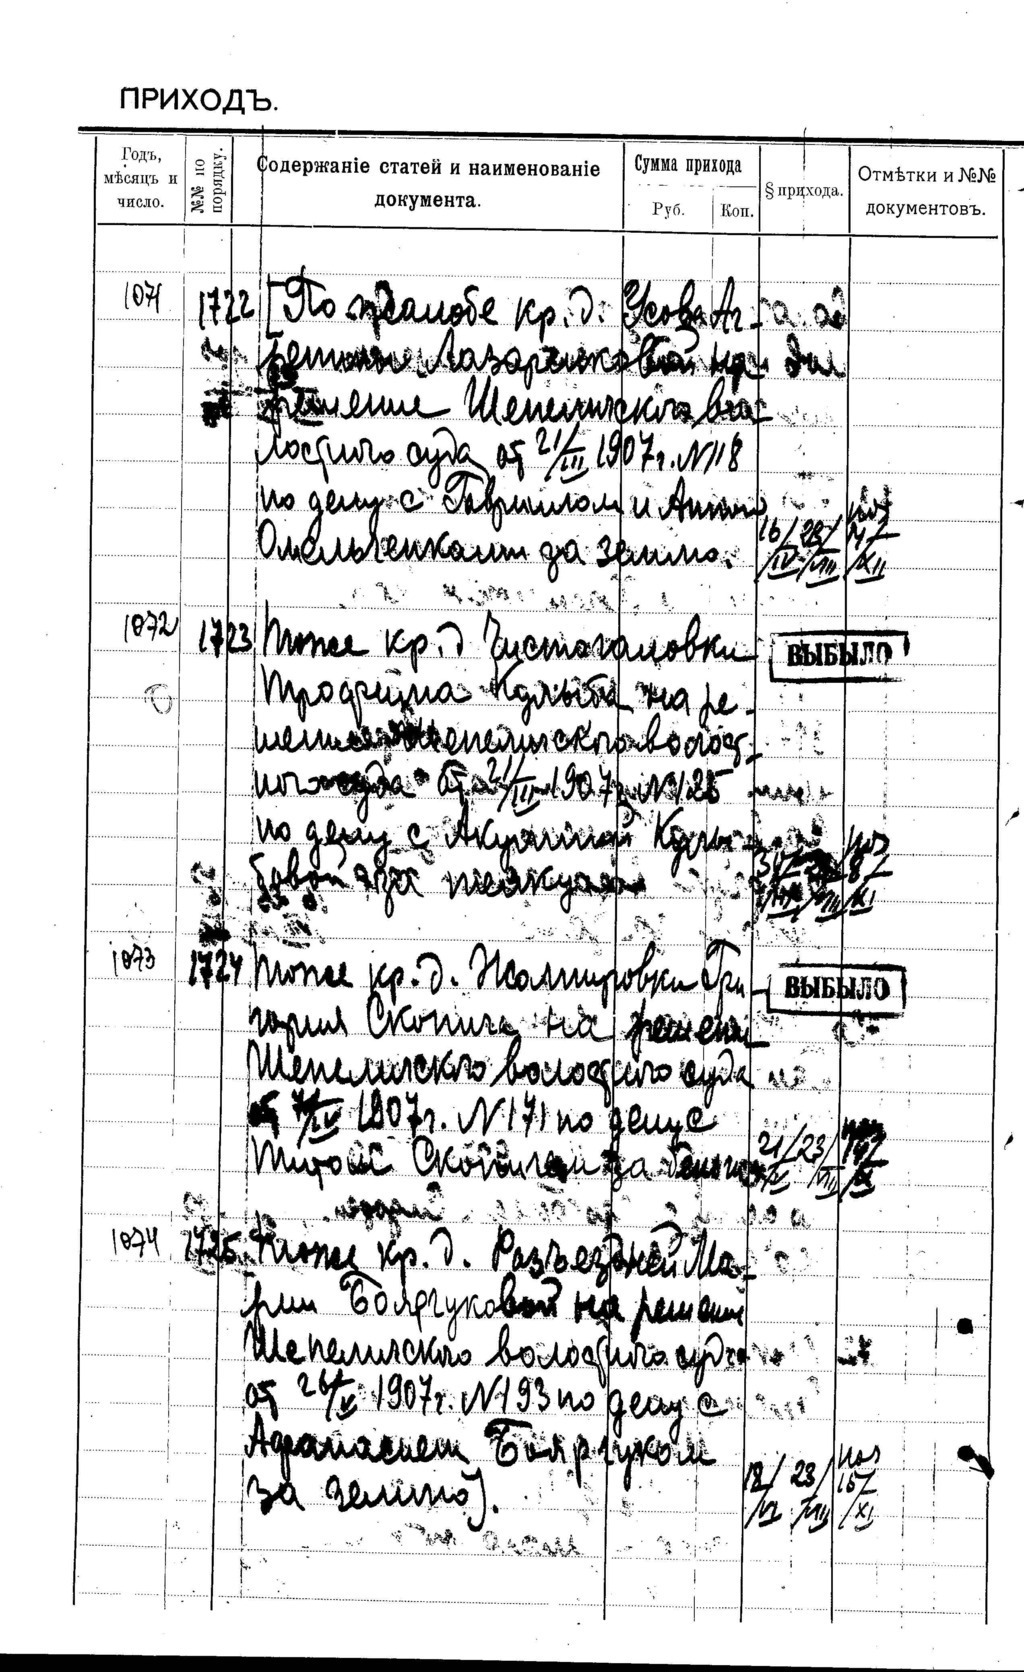 ПРИХОДЪ.
Годъ, мѣсяцъ и число.
№№ по порядку.
Содержаніе статей и наименованіе документа.
Сумма прихода
Руб.
Коп.
§ прихода.
Отмѣтки и №№ документовъ.
1071
1722
[По жалобе кр. д. Усова Аг-
Лазаренковой на
решение Шепеличского во-
лостного суда от 21/III 1907 г. N 118
по делу с Гавриилом и Анной
Омельченками за землю.
16/IV 23/VIII 14/XII
1072
1723
тоже кр. д Чистогаловки
Трофима Кулыбы на ре-
шение Шепеличского волост-
ного суда от 21/III 1907 г. N 125
по делу с Акулиной Кулы-
бовой за
ВЫБЫЛО
8/XI
1073
1724
тоже кр. д. Жолмировки Гри-
гория Скопича на решение
Шепеличского волостного суда
от 1907 г. N 171 по делу с
Титом Скопичем за
ВЫБЫЛО
21/V 23/VIII
1074
1725
тоже кр. д. Разъезжей Ма-
рии Боярчуковой на решение
Шепеличского волостного суда
от 26/V 1907 г. N 193 по делу с
Афанасием Боярчуком
за землю].
18/VI 23/VIII 15/XI